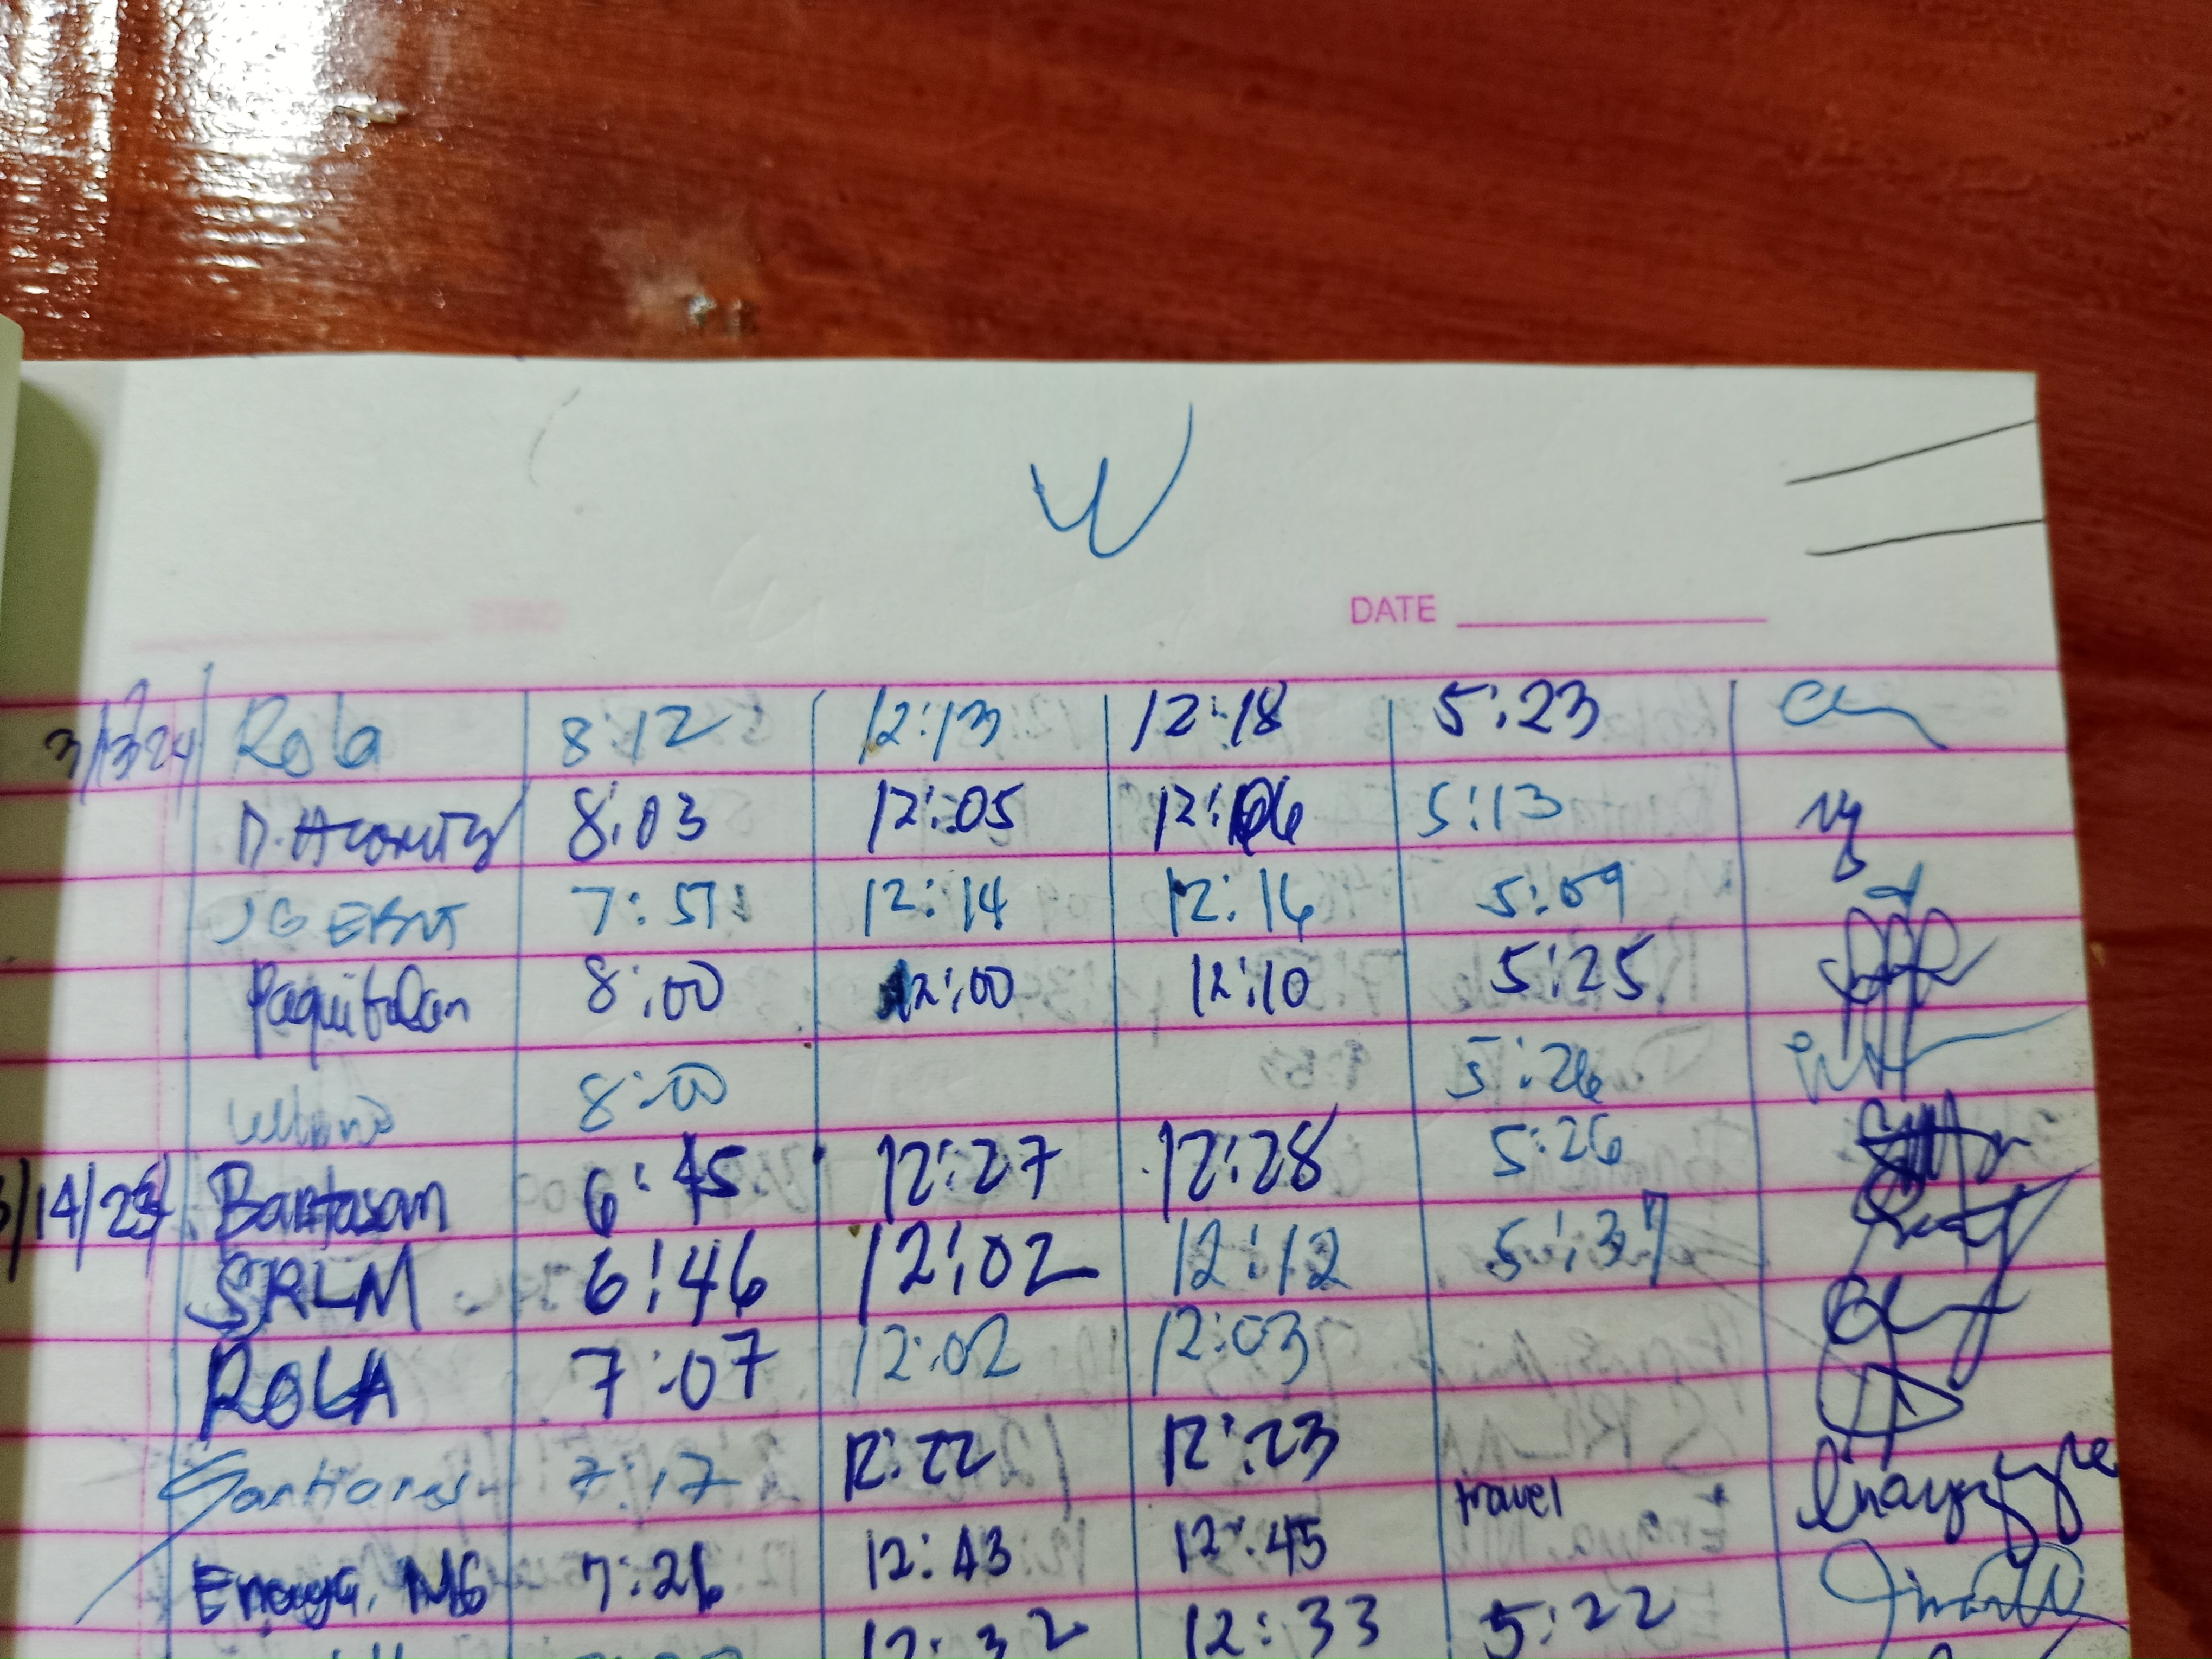 W
DATE
3/13/24 Rola 8:12 12:13 12:18 5:23
8:03 12:05 12:06 5:13
7:51 12:14 12:16 5:09
Paquitalan 8:00 12:00 12:10 5:25
8:00 5:26
3/14/24 Bantasan 6:45 12:27 12:28 5:26
SRLM 6:46 12:02 12:12 5:37
ROLA 7:07 12:02 12:03
7:17 12:22 12:23
Enaya, MG 7:26 12:43 12:45 travel
12:32 12:33 5:22